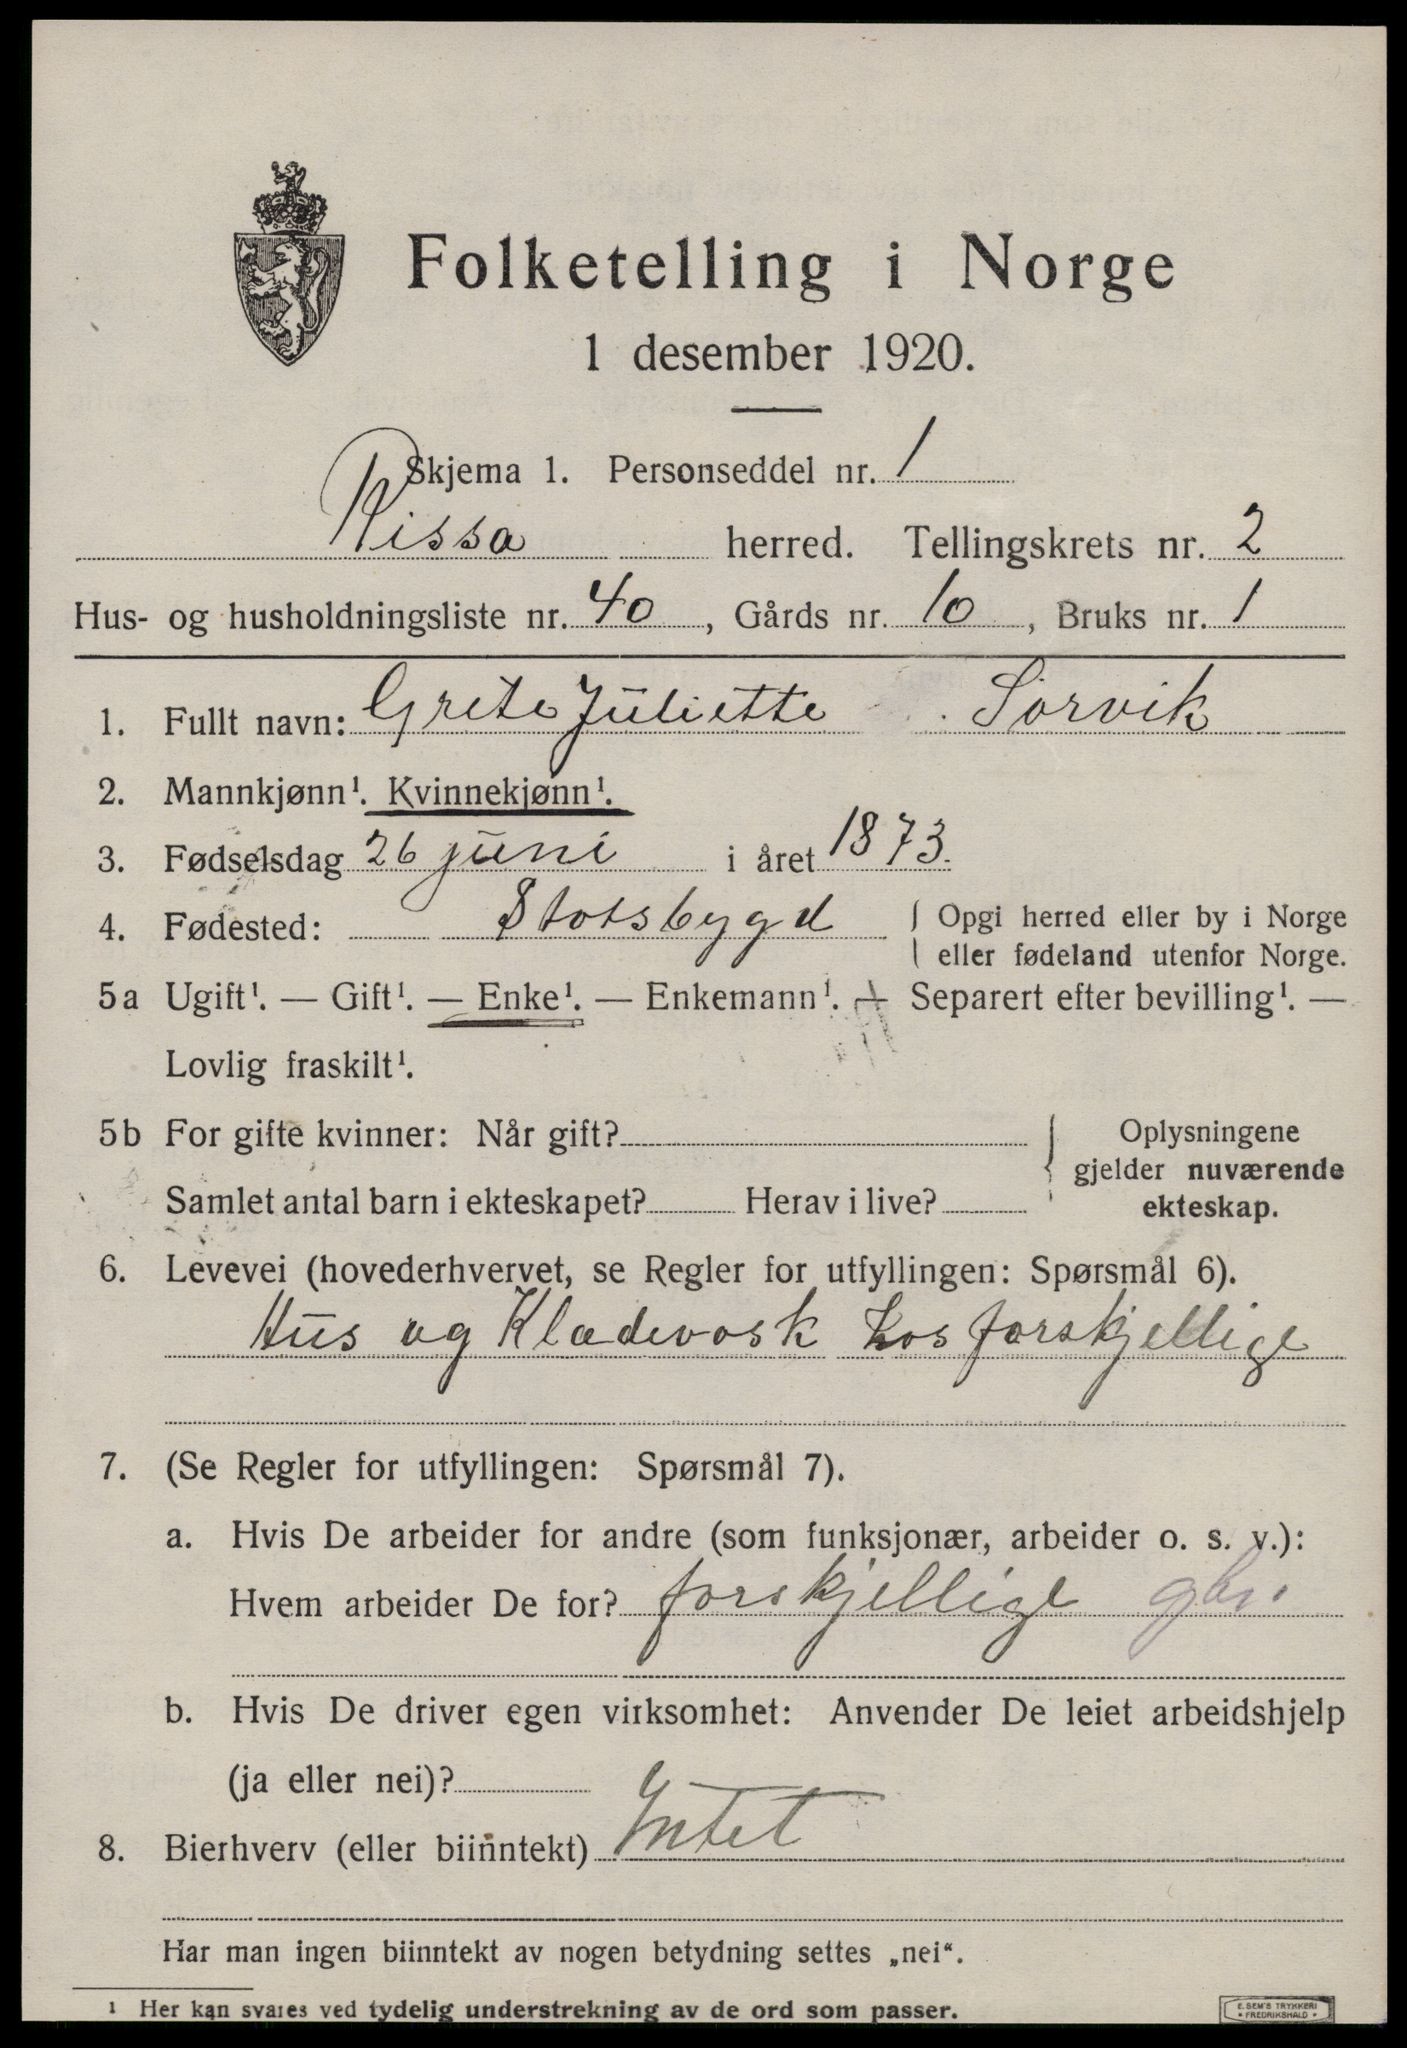 Folketelling i Norge
1 desember 1920.
Skjema 1. Personseddel nr. 1
Rissa herred. Tellingskrets nr. 2
Hus- og husholdningsliste nr. 40, Gårds nr. 10, Bruks nr. 1
1. Fullt navn: Grete Juliette Sørvik
2. Mannkjønn¹. Kvinnekjønn¹.
3. Fødselsdag 26 juni i året 1873.
4. Fødested: Statsbygd { Opgi herred eller by i Norge
eller fødeland utenfor Norge.
5a Ugift¹. — Gift¹. — Enke¹. — Enkemann¹. — Separert efter bevilling¹. —
Lovlig fraskilt¹.
5b For gifte kvinner: Når gift? } Oplysningene
gjelder nuværende
Samlet antal barn i ekteskapet? Herav i live? ekteskap.
6. Levevei (hovederhvervet, se Regler for utfyllingen: Spørsmål 6).
Hus og Klædevask hos forskjellige
7. (Se Regler for utfyllingen: Spørsmål 7).
a. Hvis De arbeider for andre (som funksjonær, arbeider o. s. v.):
Hvem arbeider De for? forskjellige gbr.
b. Hvis De driver egen virksomhet: Anvender De leiet arbeidshjelp
(ja eller nei)?
8. Bierhverv (eller biinntekt) Intet
Har man ingen biinntekt av nogen betydning settes „nei“.
¹ Her kan svares ved tydelig understrekning av de ord som passer.
E. SEM'S TRYKKERI
* FREDRIKSHALD *